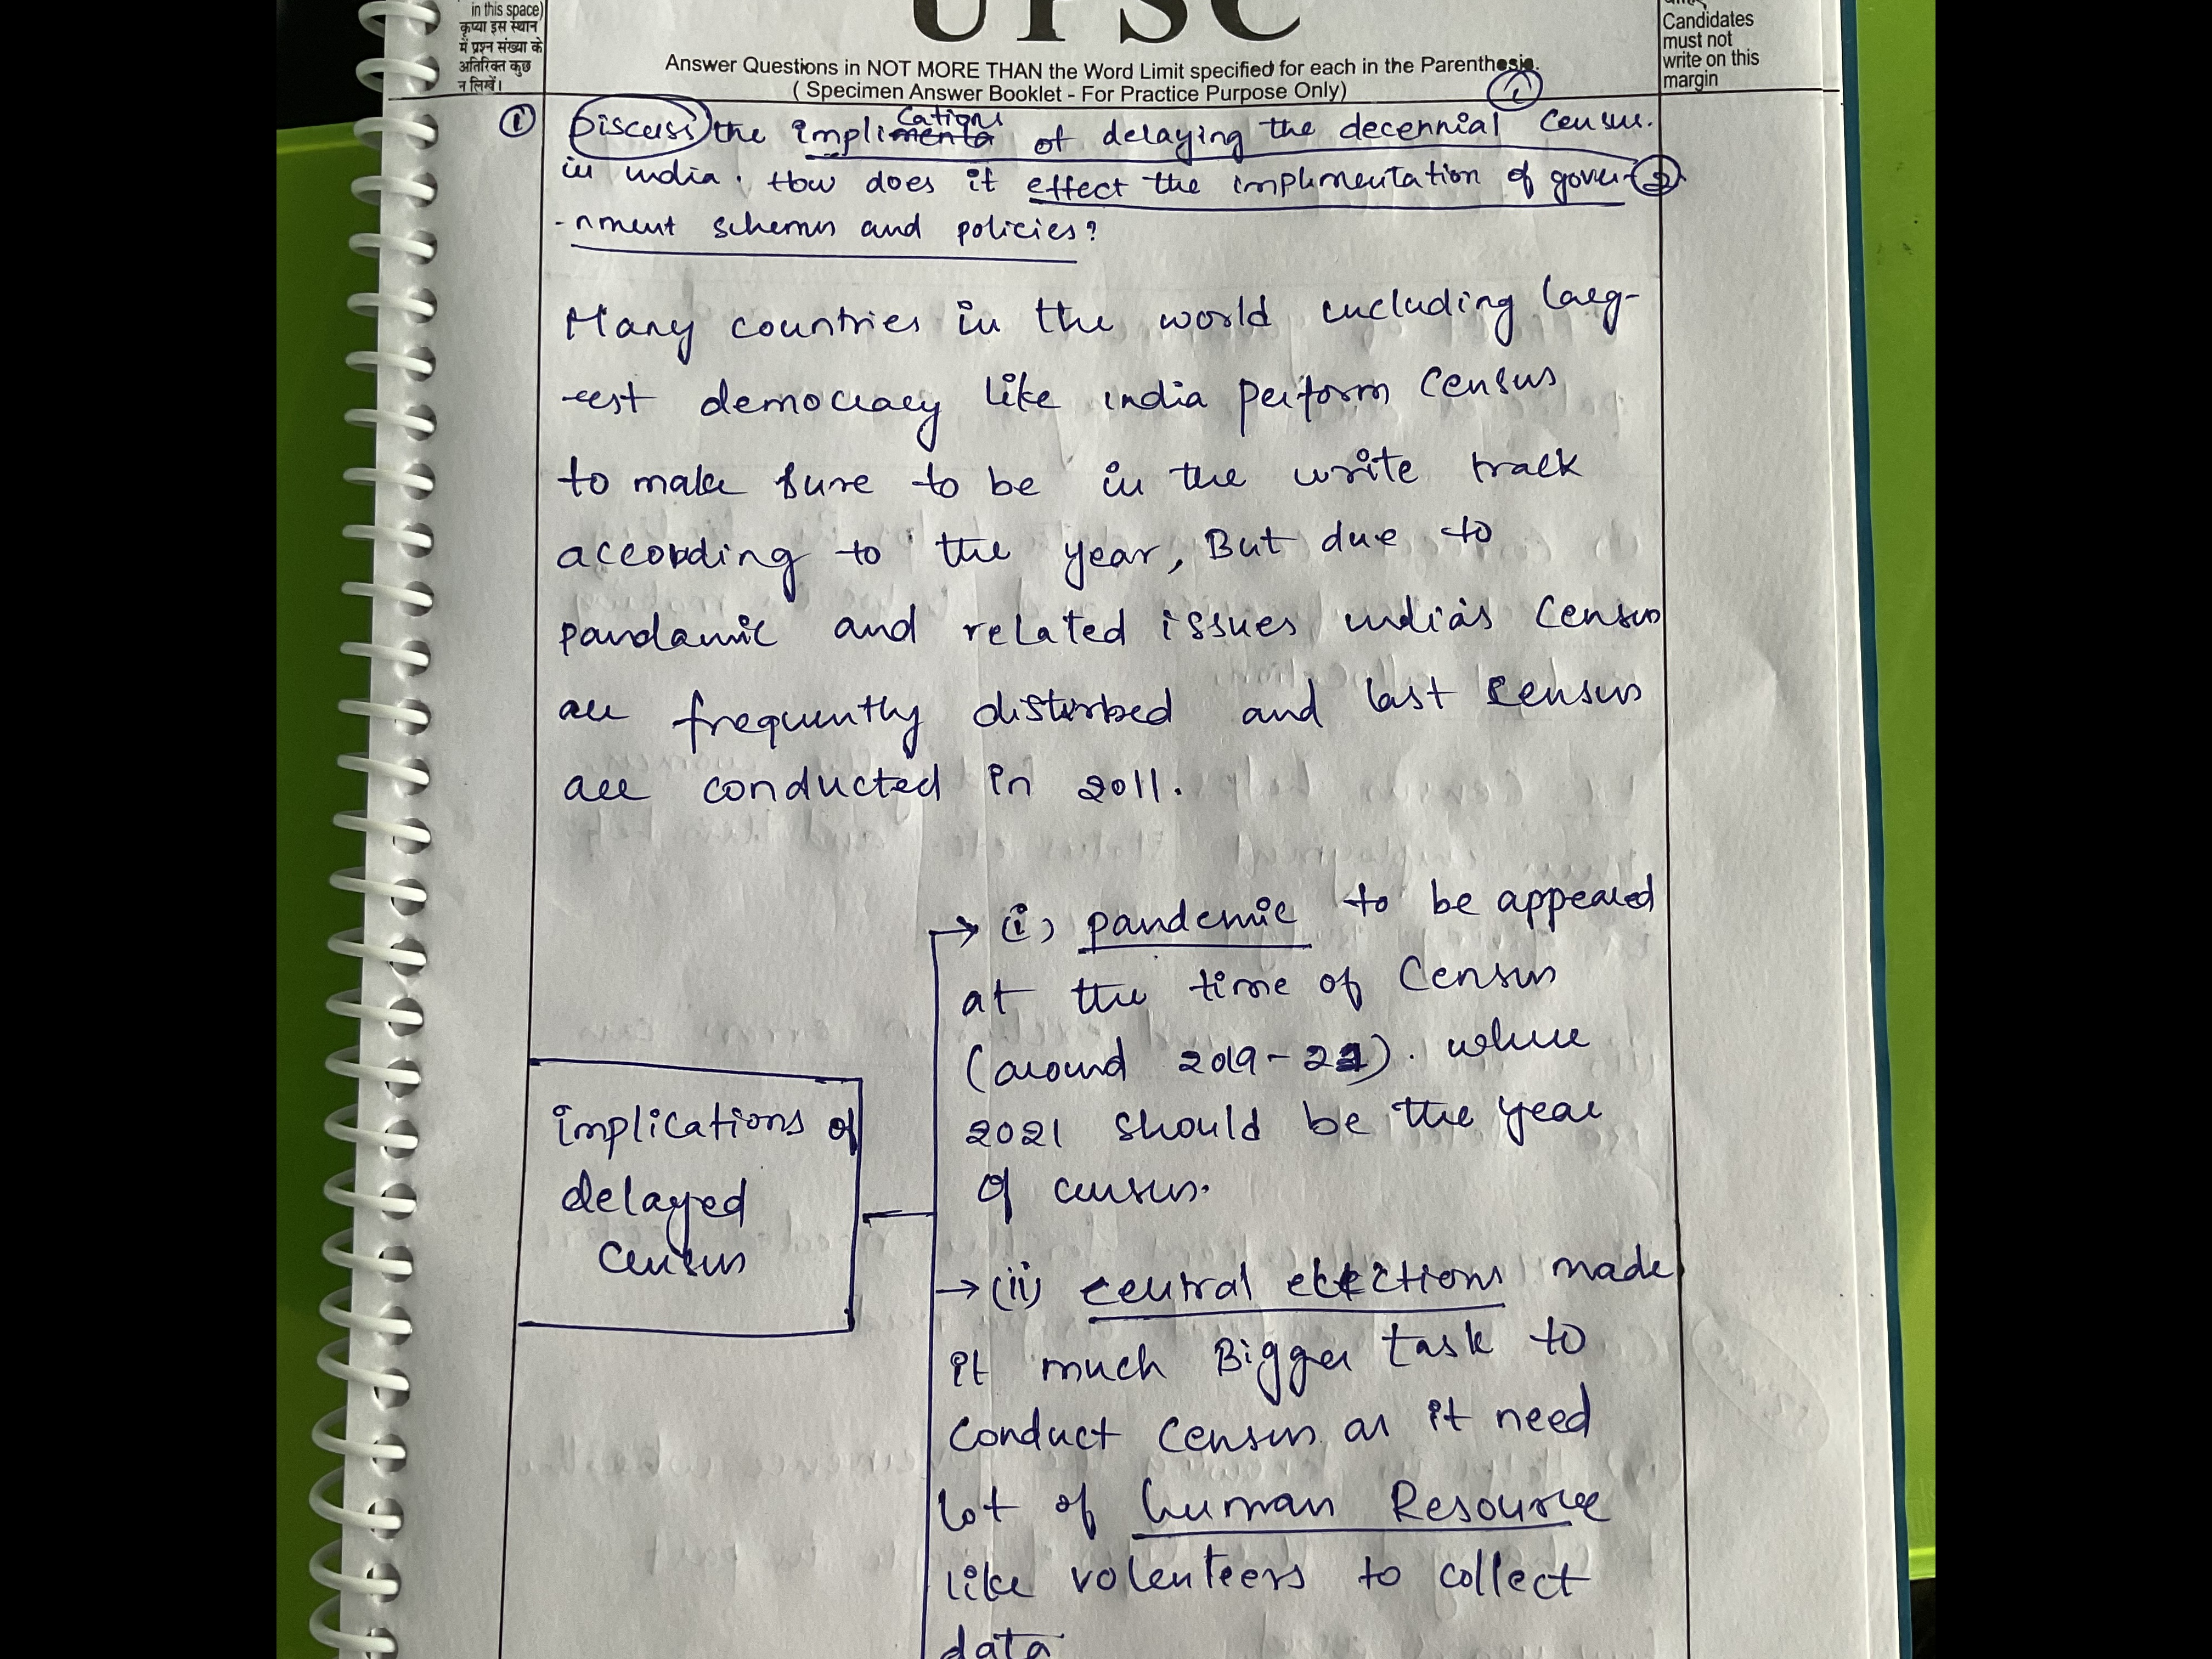 in this space)
कृप्या इस स्थान
में प्रश्न संख्या के
अतिरिक्त कुछ
न लिखें।
UPSC
Answer Questions in NOT MORE THAN the Word Limit specified for each in the Parenthesis.
( Specimen Answer Booklet - For Practice Purpose Only)
Candidates
must not
write on this
margin
① Discuss the implications of delaying the decennial Census.
in india. How does it effect the implementation of gover-
-nment schemes and policies?
Many countries in the world including larg-
-est democracy like india perform Census
to make sure to be in the write track
according to the year, But due to
pandamic and related issues india's Census
are frequently disturbed and last Census
are conducted in 2011.
Implications of
delayed
Census
→ (i) pandemic to be appeared
at the time of Census
(around 2019-21). where
2021 should be the year
of census.
→ (ii) central elections made
it much Bigger task to
conduct Census as it need
lot of human Resource
like volenteers to collect
data